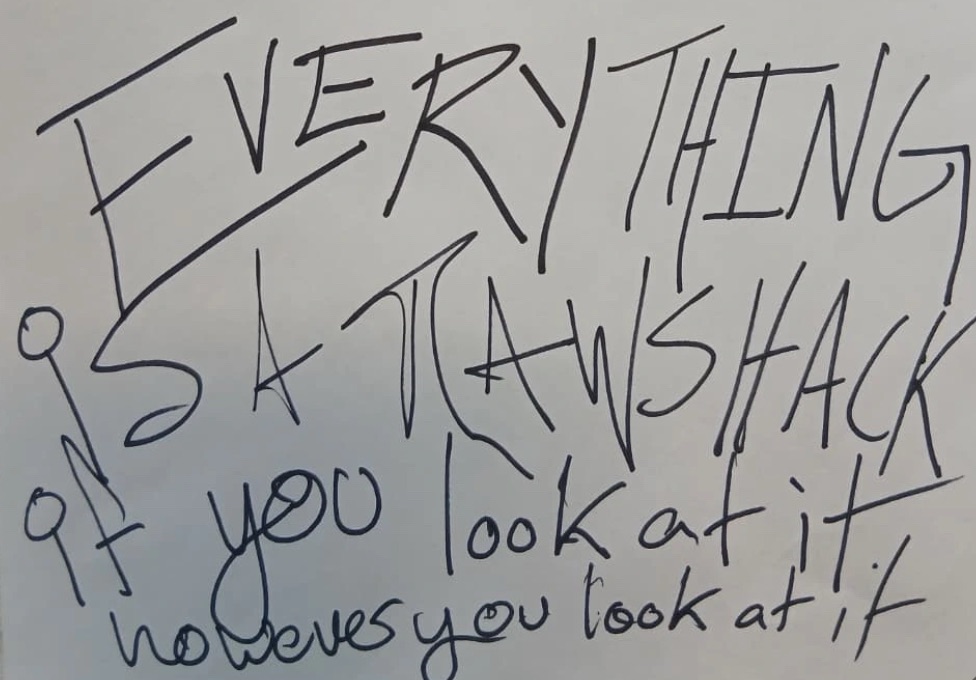 EVERYTHING
iS A
if you look at it
however you look at it